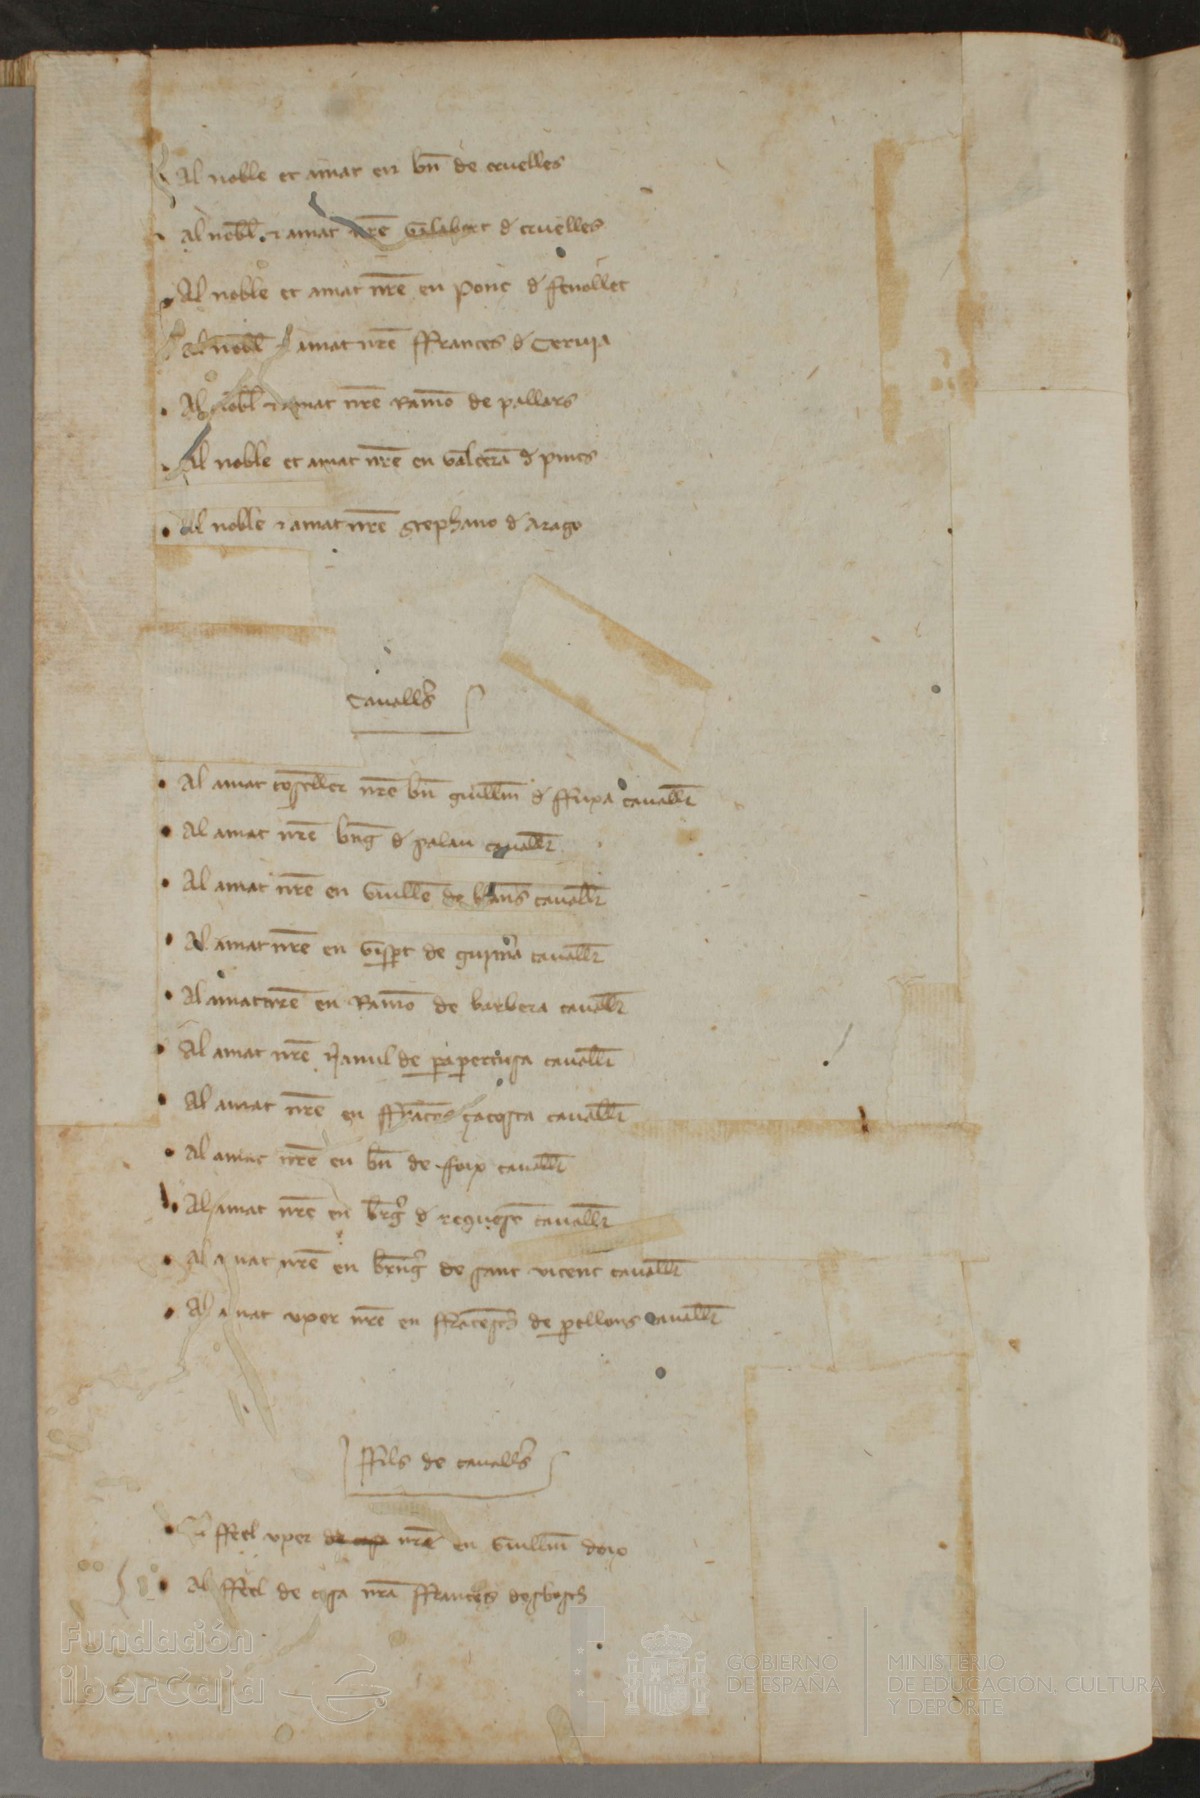 Al noble et amat en bn̄ de cruelles
Al nobl̄ ⁊ amat nr̄e Galabert d̄ cruelles
Al noble et amat nr̄e en ponc d̄ fenollet
Al nobl̄ ⁊ amat nr̄e ffrances d̄ Ceruia
Al nobl̄ ⁊ amat nr̄e Ramō de pallars
Al noble et amat nr̄e en Galcerā d̄ pinos
Al noble ⁊ amat nr̄e Stephano d̄ Arago
Cauallr̄s
Al amat coseller nr̄e bn̄ guillm̄ d̄ ffuxa cauallr̄
Al amat nr̄e bn̄g d̄ palau cauallr̄
Al amat nr̄e en Guillē de blan̄s cauallr̄
Al amat nr̄e en de cauallr̄
Al amat nr̄e en Ramō de barbera cauallr̄
Al amat nr̄e de cauallr̄
Al amat nr̄e en ffrāces çacosta cauallr̄
Al amat nr̄e en bn̄ de foix cauallr̄
Al amat nr̄e en br̄g d̄ requesē cauallr̄
Al amat nr̄e en br̄ng de sant vicent cauallr̄
Al amat vxer nr̄e en ffrācesch de p̱ellons cauallr̄
ffils de cauallr̄s
ffeel vxer nr̄e en Guillm̄
Al ffeel de casa nr̄a ffrances desbosch
Fundación
iberCaja
GOBIERNO
DE ESPAÑA
MINISTERIO
DE EDUCACIÓN, CULTURA
Y DEPORTE